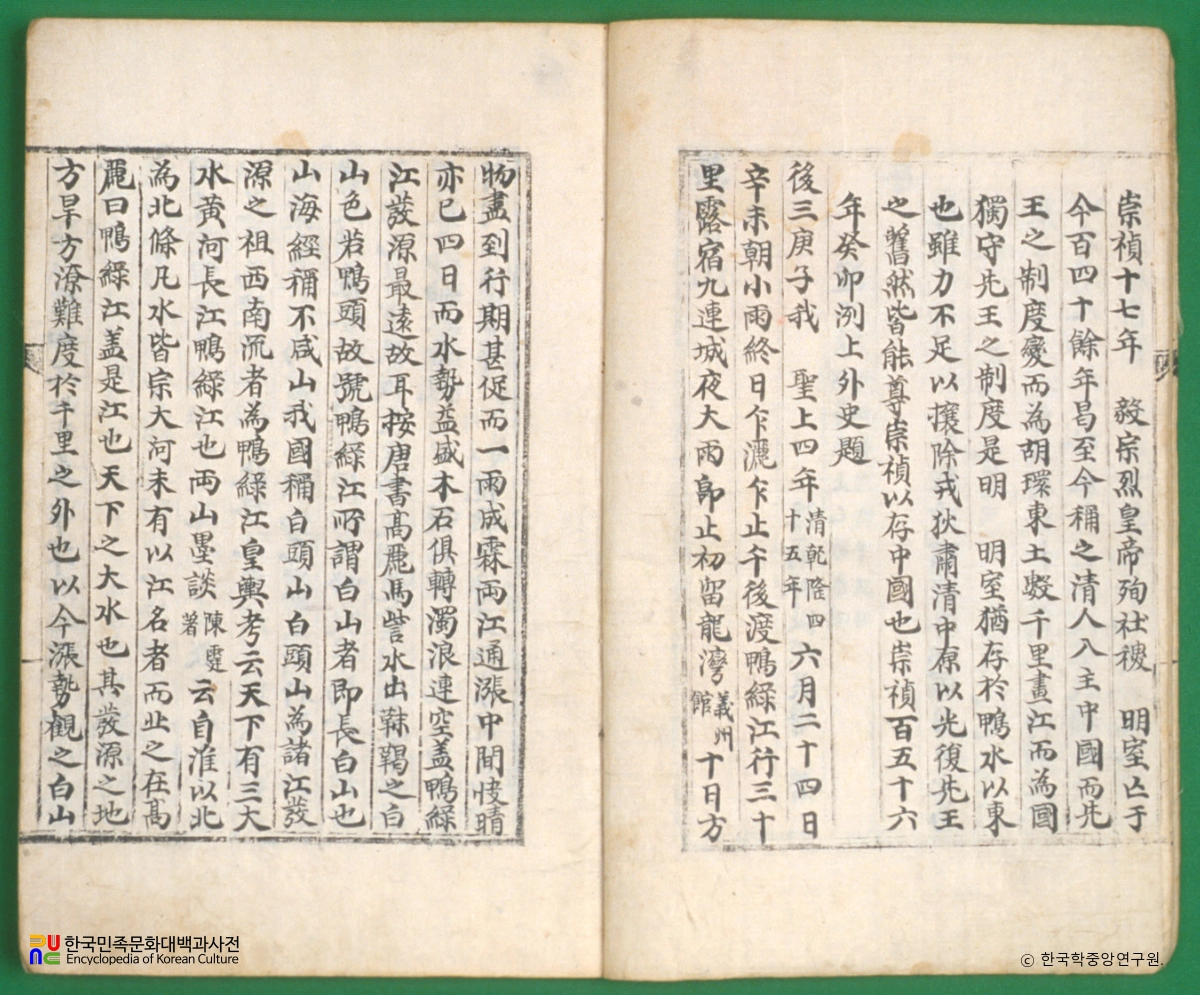 崇禎十七年 毅宗烈皇帝殉社稷 明室亡于
今百四十餘年曷至今稱之清人入主中國而先
王之制度變而為胡環東土數千里畫江而為國
獨守先王之制度是明 明室猶存於鴨水以東
也雖力不足以攘除戎狄肅清中原以光復先王
之舊然皆能尊崇禎以存中國也崇禎百五十六
年癸卯洌上外史題
後三庚子我 聖上四年清乾隆四十五年六月二十四日
辛未朝小雨終日乍灑乍止午後渡鴨綠江行三十
里露宿九連城夜大雨即止初留龍灣義州館十日方
物盡到行期甚促而一雨成霖兩江通漲中間快晴
亦已四日而水勢益盛木石俱轉濁浪連空盖鴨綠
江發源最遠故耳按唐書高麗馬訾水出靺鞨之白
山色若鴨頭故號鴨綠江所謂白山者即長白山也
山海經稱不咸山我國稱白頭山白頭山為諸江發
源之祖西南流者為鴨綠江皇輿考云天下有三大
水黃河長江鴨綠江也兩山墨談陳霆著云自淮以北
為北條凡水皆宗大河未有以江名者而此之在高
麗曰鴨綠江盖是江也天下之大水也其發源之地
方旱方潦難度於千里之外也以今漲勢觀之白山
한국민족문화대백과사전
Encyclopedia of Korean Culture
ⓒ 한국학중앙연구원.